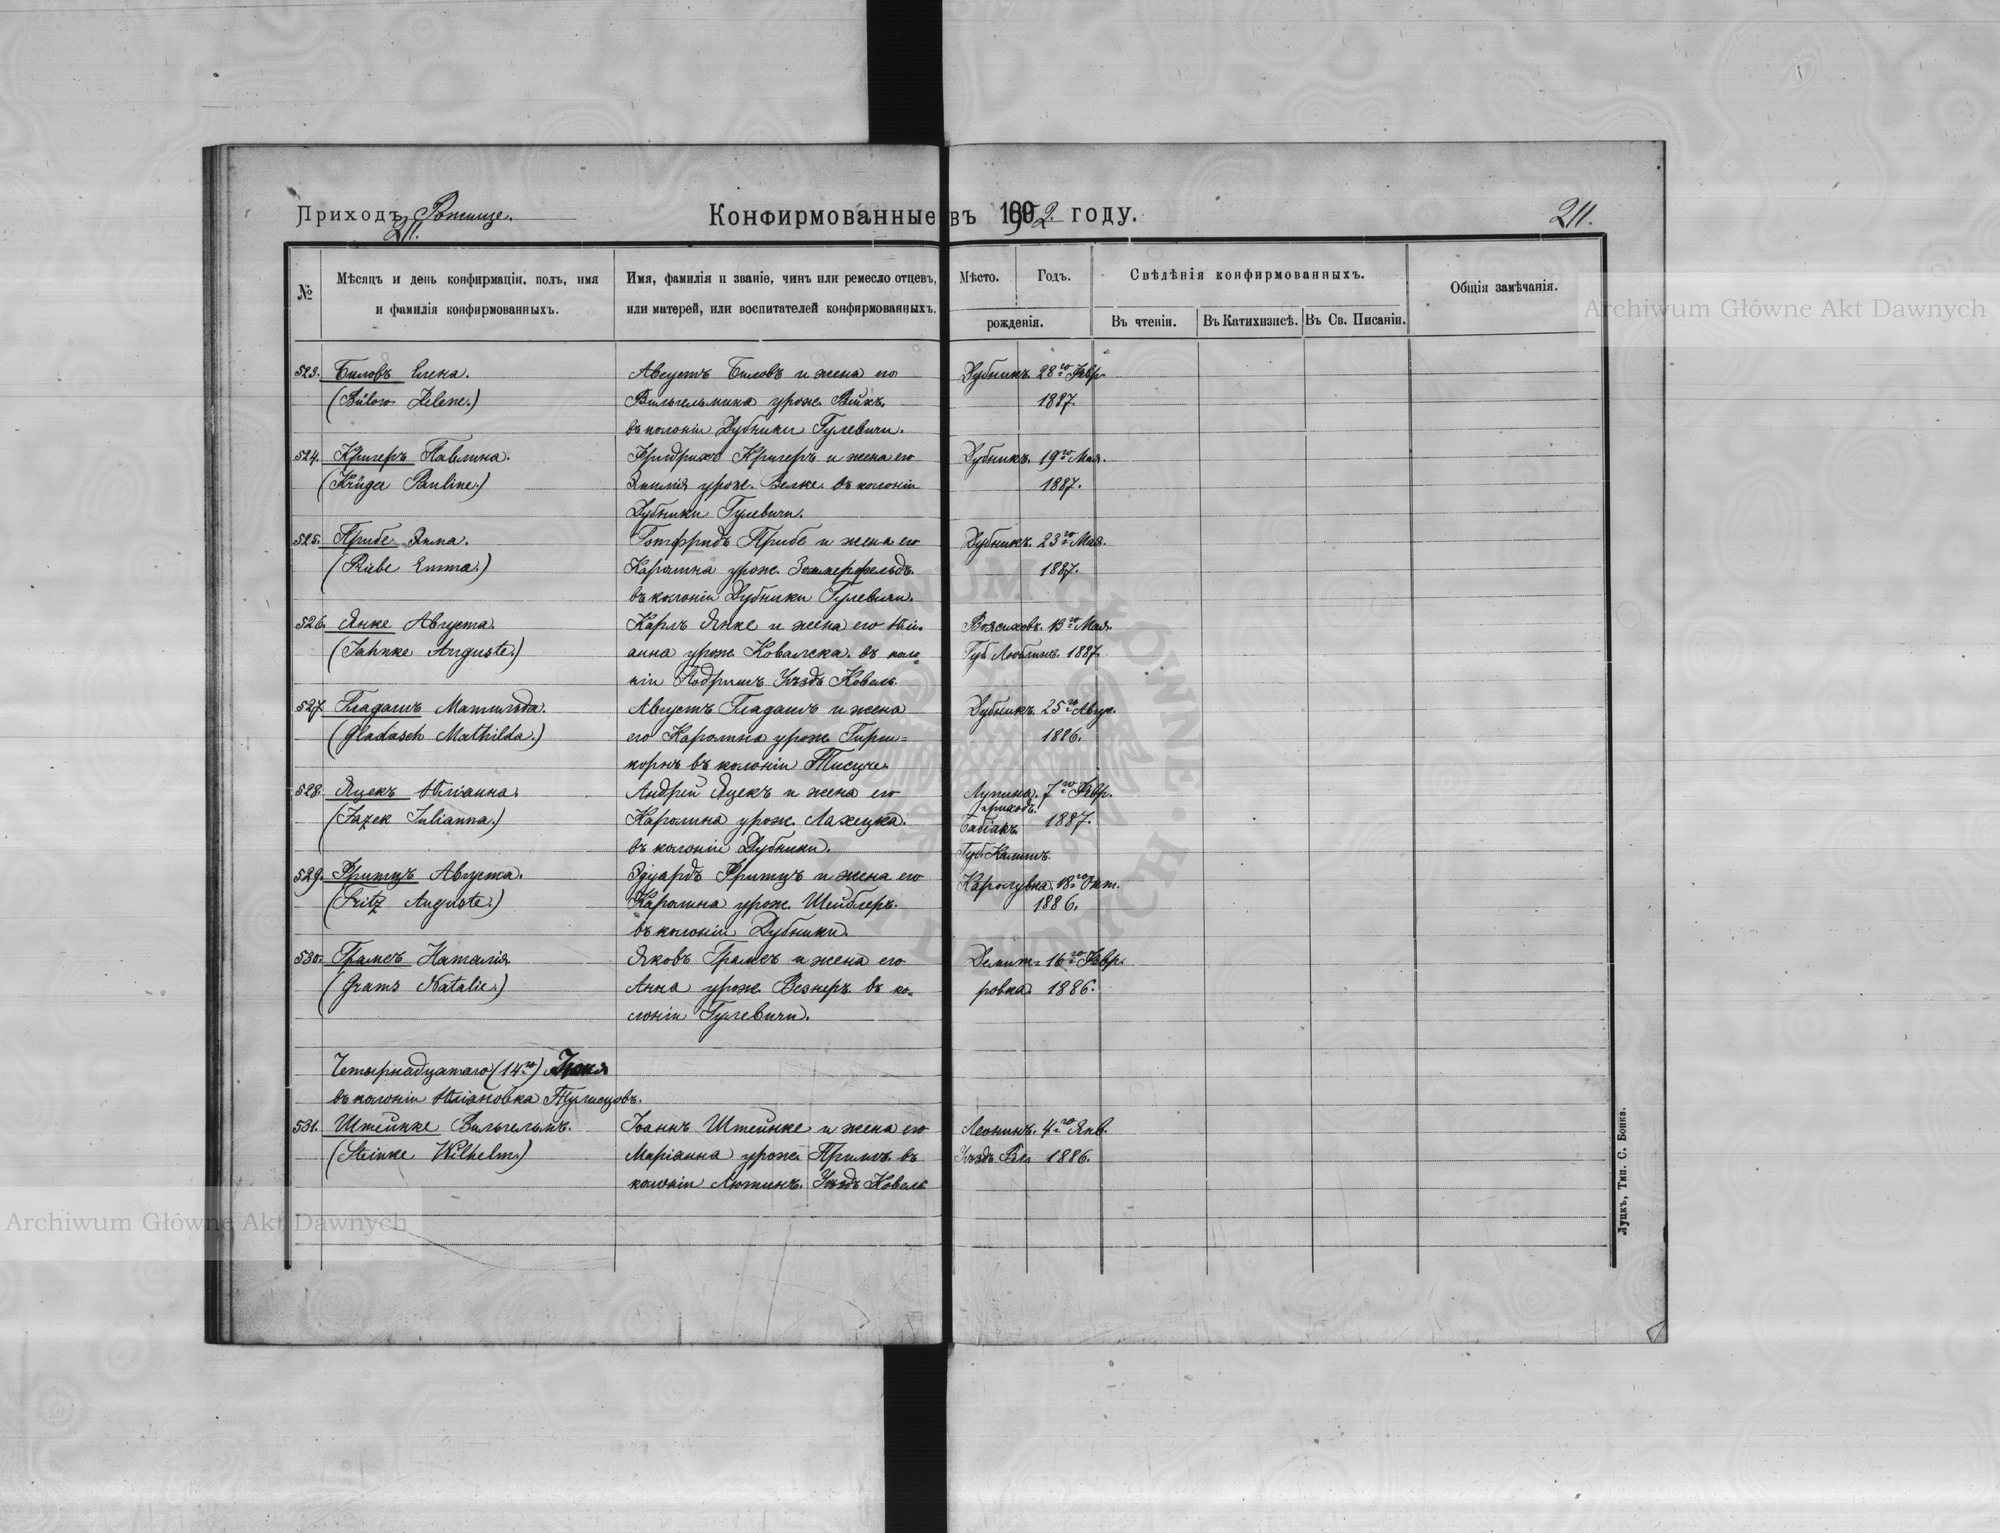 Приходъ Рожище.
211.
Конфирмованные въ 1902. году.
211.
№
Мѣсяцъ и день конфирмаціи, полъ, имя
и фамилія конфирмованныхъ.
Имя, фамилія и званіе, чинъ или ремесло отцевъ,
или матерей, или воспитателей конфирмованныхъ.
Мѣсто.
Годъ.
рожденія.
Свѣдѣнія конфирмованныхъ.
Въ чтеніи.
Въ Катихизисѣ.
Въ Св. Писаніи.
Общія замѣчанія.
523. Биловъ Елена. Августъ Биловъ и жена его Дубникъ. 28го Февр.
(Bülow Helene.) Вильгельмина урож. 1887.
въ колоніи Дубники Гулевичи.
524. Кригеръ Павлина. Фридрихъ Кригеръ и жена его Дубникъ. 19го Мая.
(Krüger Pauline.) Эмилія урож. Велке въ колоніи 1887.
Дубники Гулевичи.
525. Прибе Эмма. Готфридъ Прибе и жена его Дубникъ. 23го Мая.
(Priebe Emma.) Каролина урож. Зоммерфельдъ 1887.
въ колоніи Дубники Гулевичи.
526. Янке Августа. Карлъ Янке и жена его Юлі- 13го Мая.
(Jahnke Auguste.) анна урож. Ковалска въ коло- Губ. Люблинъ. 1887.
ніи Уѣздъ Ковель
527. Гладашъ Матильда. Августъ Гладашъ и жена Дубникъ. 25го Авгус.
(Gladasch Mathilda.) его Каролина урож. Гирш= 1886.
корнъ въ колоніи
528. Яцекъ Юліанна. Андрей Яцекъ и жена его Лупина. 7го Февр.
приходъ.
(Jazek Julianna.) Каролина урож. Бабіакъ 1887.
въ колоніи Дубники. Губ. Калишъ.
529. Фритцъ Августа. Эдуардъ Фритцъ и жена его Каролувка. 18го Окт.
(Fritz Auguste.) Каролина урож. Шейблеръ. 1886.
въ колоніи Дубники.
530. Грамсъ Наталія Яковъ Грамсъ и жена его Демит- 16го Февр.
(Grams Natalie.) Анна урож. Везнеръ въ ко- ровка. 1886.
лоніи Гулевичи.
Четырнадцатаго (14го)
въ колоніи Юліановка
531. Штейнке Вильгельмъ. Іоаннъ Штейнке и жена его Леонинъ. 4го Янв.
(Steinke Wilhelm.) Маріанна урож. въ Уѣздъ 1886.
колоніи Уѣздъ Ковель
Луцкъ, Тип. С. Бонка.
Archiwum Główne Akt Dawnych
Archiwum Główne Akt Dawnych
ARCHIWUM GŁÓWNE AKT DAWNYCH